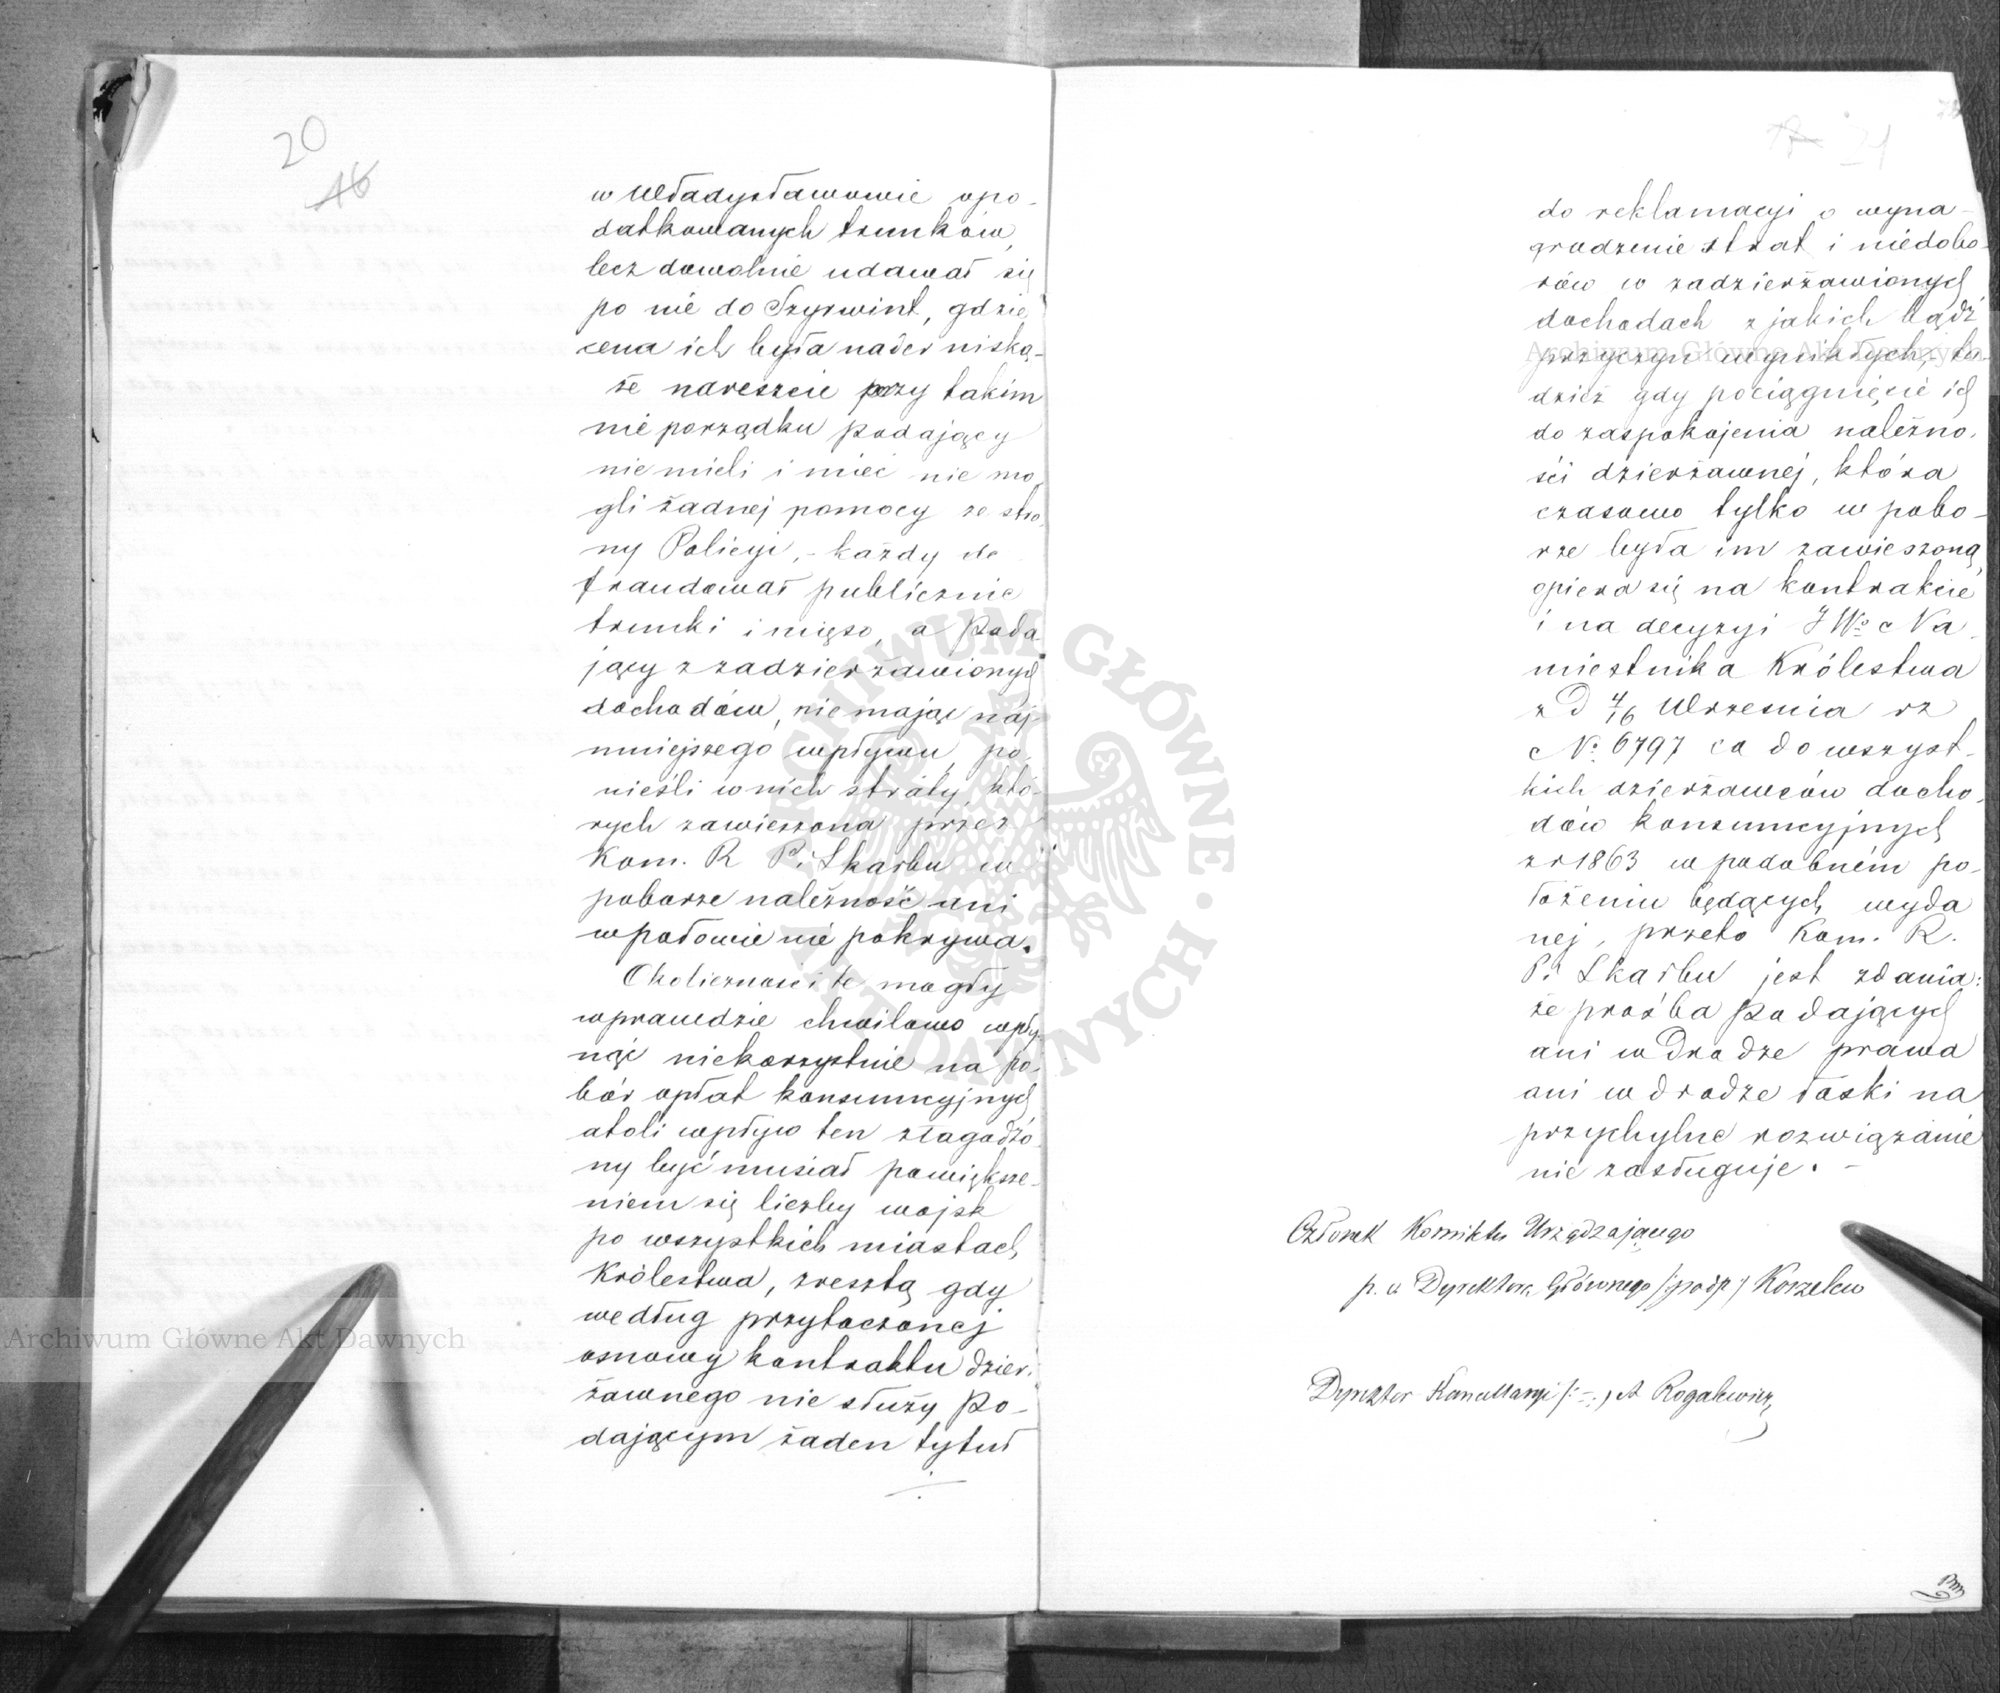 20
46
w Władysławowie opo-
datkowanych trunków,
lecz dowolnie udawał się
po nie do Szyrwint, gdzie
cena ich była nader niską-
że nareszcie przy takim
nieporządku podający
nie mieli i mieć nie mo
gli żadnej pomocy ze stro
ny Policyi, - każdy de
fraudował publicznie
trunki i mięso, a Poda
jący z zadzierżawionych
dochodów, nie mając naj-
mniejszego wpływu, po-
nieśli w nich straty, któ-
rych zawieszona przez
Kom. R P. i Skarbu w
poborze należność ani
w połowie nie pokrywa.
Okoliczności te mogły
wprawdzie chwilowo wpły-
nąć niekorzystnie na po-
bór opłat konsumcyjnych
atoli wpływ ten złagodzo-
ny być musiał powiększe-
niem się liczby wojsk
po wszystkich miastach
Królestwa, zresztą gdy
według przytoczonej
osnowy kontraktu dzier-
żawnego nie służy Po-
dającym żaden tytuł
21
do reklamacyi o wyna-
grodzenie strat i niedobo-
rów w zadzierżawionych
dochodach z jakich bądź
przyczyn wynikłych, - tu-
dzież gdy pociągnięcie ich
do zaspokojenia należno-
ści dzierżawnej, która
czasowo tylko w pobo-
rze była im zawieszoną,
opiera się na kontrakcie
i na decyzyi JWgo Na
miestnika Królestwa
z D 4/16 Września rz
No 6797 co do wszyst-
kich dzierżawców docho-
dów konsumcyjnych
z r 1863 w podobném po-
łożeniu będących wyda
nej, przeto Kom. R.
P. i Skarbu jest zdania:
że prośba Podających
ani w Drodze prawa
ani w drodze łaski na
przychylne rozwiązanie
nie zasługuje. -
Członek Komitetu Urządzającego
p. o Dyrektora Głównego /:podp:/ Korzelew
Dyrektor Kancellaryi /: - :/ A Rogalewicz
Archiwum Główne Akt Dawnych
Archiwum Główne Akt Dawnych
ARCHIWUM GŁÓWNE · AKT DAWNYCH ·